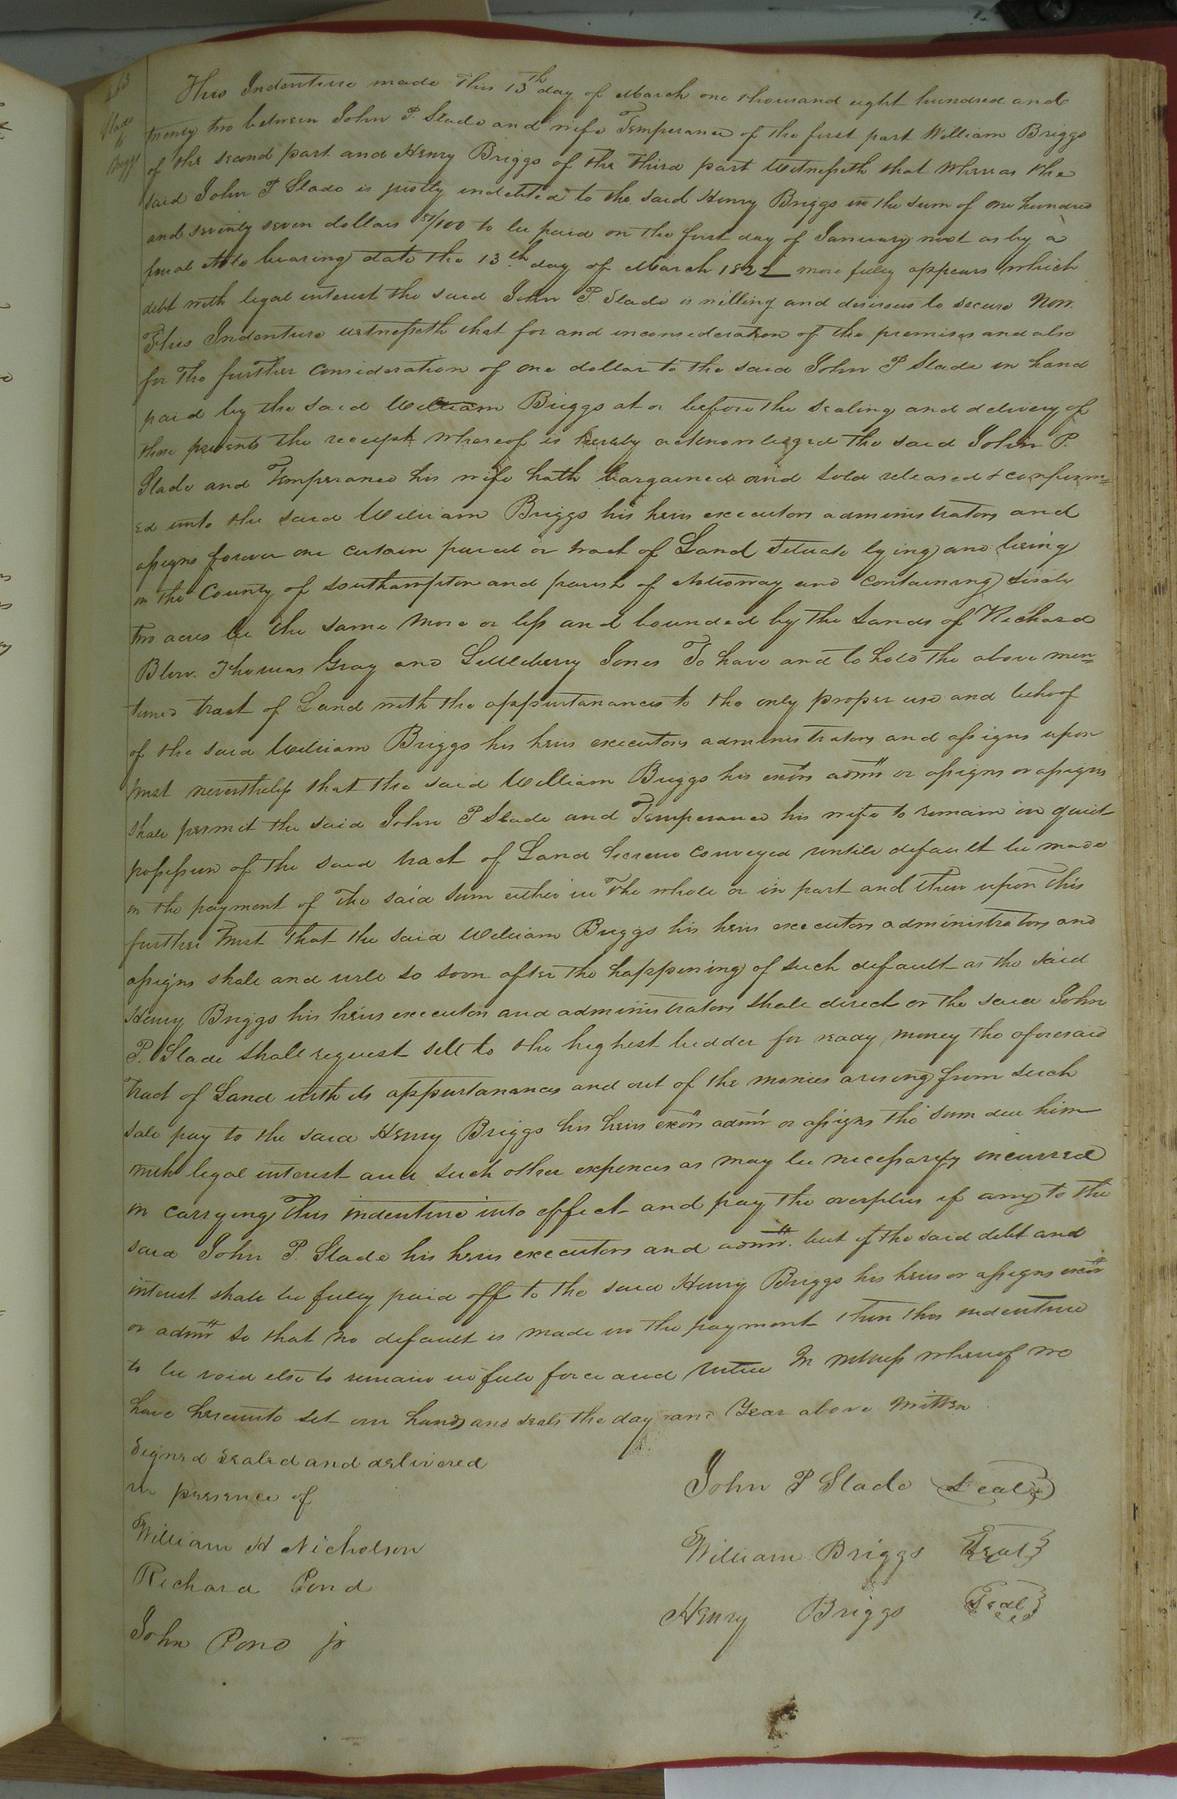 Slade
to
Briggs
This Indenture made this 13th day of March one thousand eight hundred and
twenty two between John P. Slade and wife Temperance of the first part William Briggs
of the second part and Henry Briggs of the third part Witnesseth that whereas the
said John P Slade is justly indebted to the said Henry Briggs in the sum of one hundred
and seventy seven dollars 51/100 to be paid on the first day of January next as by a
bearing date the 13th day of March 1822 more fully appears which
debt with legal interest the said John P. Slade is willing and desirous to secure Now
This Indenture witnesseth that for and inconsideration of the premises and also
for the further consideration of one dollar to the said John P Slade in hand
paid by the said William Briggs at or before the sealing and delivery of
these presents the receipt whereof is hereby acknowledged the said John P.
Slade and Temperance his wife hath bargained and sold released & confirm=
ed unto the said William Briggs his heirs executors administrators and
assigns forever one certain parcel or tract of Land situate lying and being
in the County of Southampton and parish of Nottoway and containing
two acres be the same more or less and bounded by the Lands of Richard
Blow. Thomas Gray and Littleberry Jones To have and to hold the above men=
tioned tract of Land with the appurtanances to the only proper use and behoof
of the said William Briggs his heirs executors administrators and assigns upon
trust nevertheless that the said William Briggs his exors admrs or assigns or assigns
shall permit the said John P Slade and Temperance his wife to remain in quiet
possession of the said tract of Land herein conveyed untill default be made
in the payment of the said sum either in the whole or in part and then upon this
further trust that the said William Briggs his heirs executors administrators and
assigns shall and will so soon after the happening of such default as the said
Henry Briggs his heirs executors and administrators shall direct or the said John
P. Slade shall request sell to the highest bidder for ready money the aforesaid
tract of Land with its appurtanances and out of the monies arising from such
sale pay to the said Henry Briggs his heirs exors admrs or assigns the sum due him
with legal interest and such other expences as may be necessarily incurred
in carrying this indenture into effect and pay the overplus if any to the
said John P. Slade his heirs executors and admrs. but if the said debt and
interest shall be fully paid off to the said Henry Briggs his heirs or assigns exors
or admrs so that no default is made in the payment then this indenture
to be void else to remain in full force and virtue In witness whereof we
have hereunto set our hands and seals the day and Year above written
Signed sealed and delivered
in presence of
William H Nicholson
Richard Pond
John Pond jr
John P Slade Seal
William Briggs Seal
Henry Briggs Seal